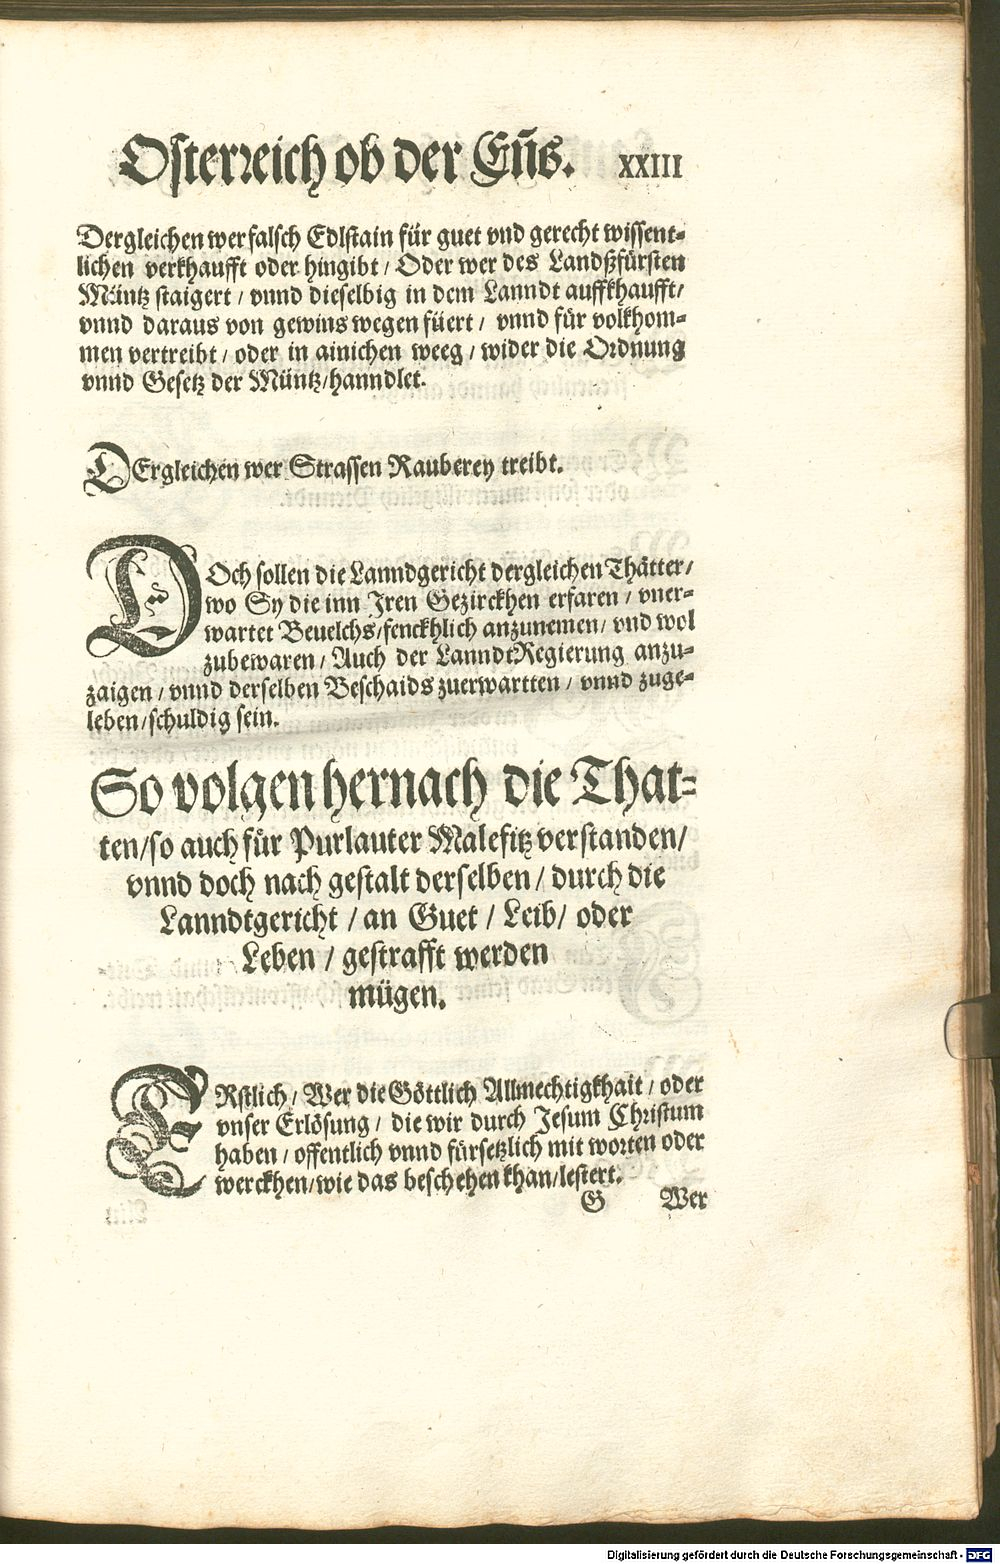 Osterreich ob der Eñs. XXIII
Dergleichen wer falsch Edlstain für guet vnd gerecht wissent-
lichen verkhaufft oder hingibt / Oder wer des Landßfürsten
Müntz staigert / vnnd dieselbig in dem Lanndt auffkhaufft /
vnnd daraus von gewins wegen füert / vnnd für volkhom-
men vertreibt / oder in ainichen weeg / wider die Ordnung
vnnd Gesetz der Müntz / hanndlet.
DErgleichen wer Strassen Rauberey treibt.
DOch sollen die Lanndgericht dergleichen Thätter /
wo Sy die inn Jren Gezirckhen erfaren / vner-
wartet Beuelchs / fenckhlich anzunemen / vnd wol
zubewaren / Auch der LanndtRegierung anzu-
zaigen / vnnd derselben Beschaids zuerwartten / vnnd zuge-
leben / schuldig sein.
So volgen hernach die That-
ten / so auch für Purlauter Malefitz verstanden /
vnnd doch nach gestalt derselben / durch die
Lanndtgericht / an Guet / Leib / oder
Leben / gestrafft werden
mügen.
ERstlich / Wer die Göttlich Allmechtigkhait / oder
vnser Erlösung / die wir durch Jesum Christum
haben / offentlich vnnd fürsetzlich mit worten oder
werckhen / wie das beschehen khan / lestert.
G Wer
Digitalisierung gefördert durch die Deutsche Forschungsgemeinschaft - DFG